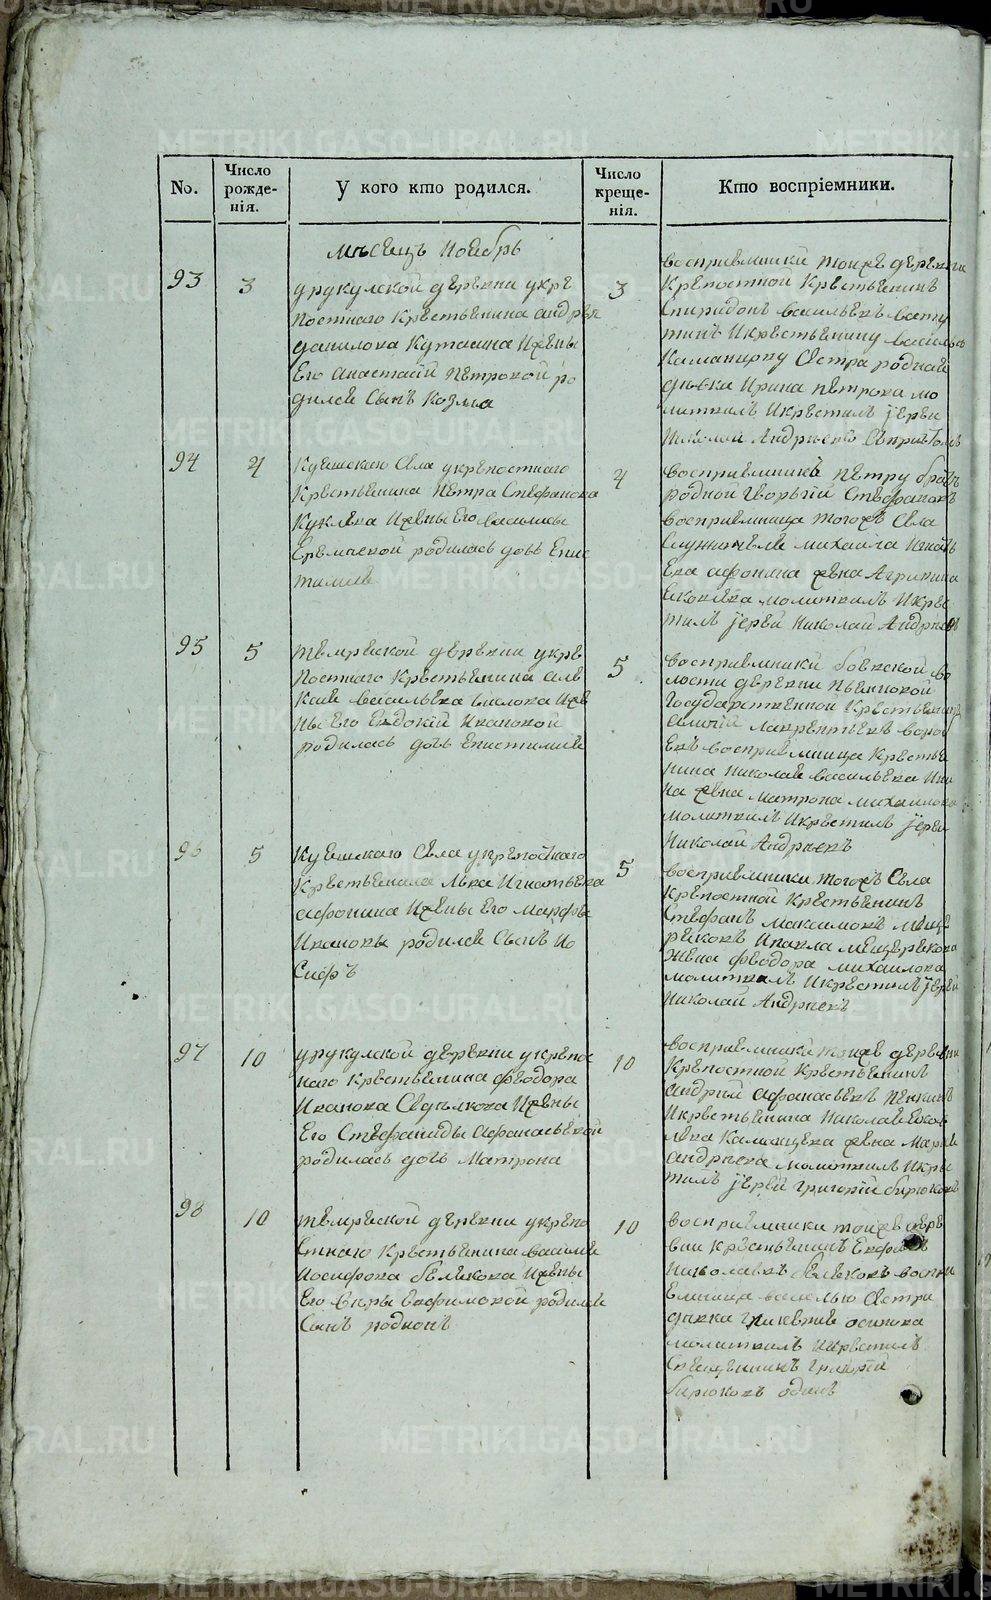 No.
Число
рожде-
нія.
У кого кто родился.
Число
креще-
нія.
Кто воспріемники.
мѣсецъ Ноебрь
93
3
урукулской деревни укре
постнаго крестьенина андрѣя
данилова Куташина Ижены
Его Анастасій Петровой ро
дилсе Сынъ Козма
3
воспривмники тоиже деревни
Крѣпостной Крестьенинъ
Спиридонъ васильевъ вату
тинъ Икрестьенину василью
сестра родная
дѣвка Ирина петрова мо
литвилъ Икрестилъ јереи
Николаи Андрѣевъ
94
4
Куешскаго Села укрѣпостнаго
Крестьенина Петра Стефанова
Куклева Ижены Его василисы
Еремѣевой родилась дочь Епис
тимие
4
воспривмникъ петру братъ
родной Георьгій Стефановъ
воспривмница тогожъ Села
Служителе михаила Игнать
Ева афонина жена Агрипина
молитвилъ Икрес
тилъ јерей Николай Андрѣевъ
95
5
темреской деревни укре
постнаго Крестьенина але
ксее васильева Ижe
ны Его Евдокій Ивановой
родилась дочь Епистимие
5
воспривмники боевской во
лости деревни
Государственной Крестьенинъ
лаврентьевъ
воспривмница Крестье
нина Николае васильева
жена матрона михаилова
молитвилъ Икрестилъ јереи
Николай Андрѣевъ
96
5
Куешскаго Села укрѣпостнаго
Крестьенина лва Игнатьева
афонина Ижены Его марфы
Ивановы родилсе Сынъ Ио
сифъ
5
воспривмники тогожъ Села
крѣпостной Крестьенинъ
Стефанъ максимовъ меще
рековъ Ипавла мещерекова
Жена феодора михаилова
молитвилъ Икрестилъ јереи
Николай Андрѣевъ
97
10
урукулской деревни укрѣпос
наго Крестьенина феодора
Иванова Седѣлкова Ижены
Его Стефаниды Афанасьевой
родилась дочь Матрона
10
воспривмники тоиже деревни
Крѣпостной Крестьенинъ
андрѣй афанасьевъ
Икрестьенина Николае Еков
лева жена Марие
андрѣева молитвилъ Икрѣс
тилъ јерей Григорій бирюковъ
98
10
темреской деревни укрѣпо
стнаго Крестьенина василие
Иосифова белекова Ижены
Его вѣры Евфимовой родилсе
Сынъ родионъ
10
воспривмники тоиже дере
вни крестьенинъ
Николаевъ белековъ воспри
Емница василью Сестра
дѣвка осипова
молитвилъ Икрестилъ
Свещенникъ Григорій
бирюковъ одинъ
METRIKI.GASO-URAL.RU